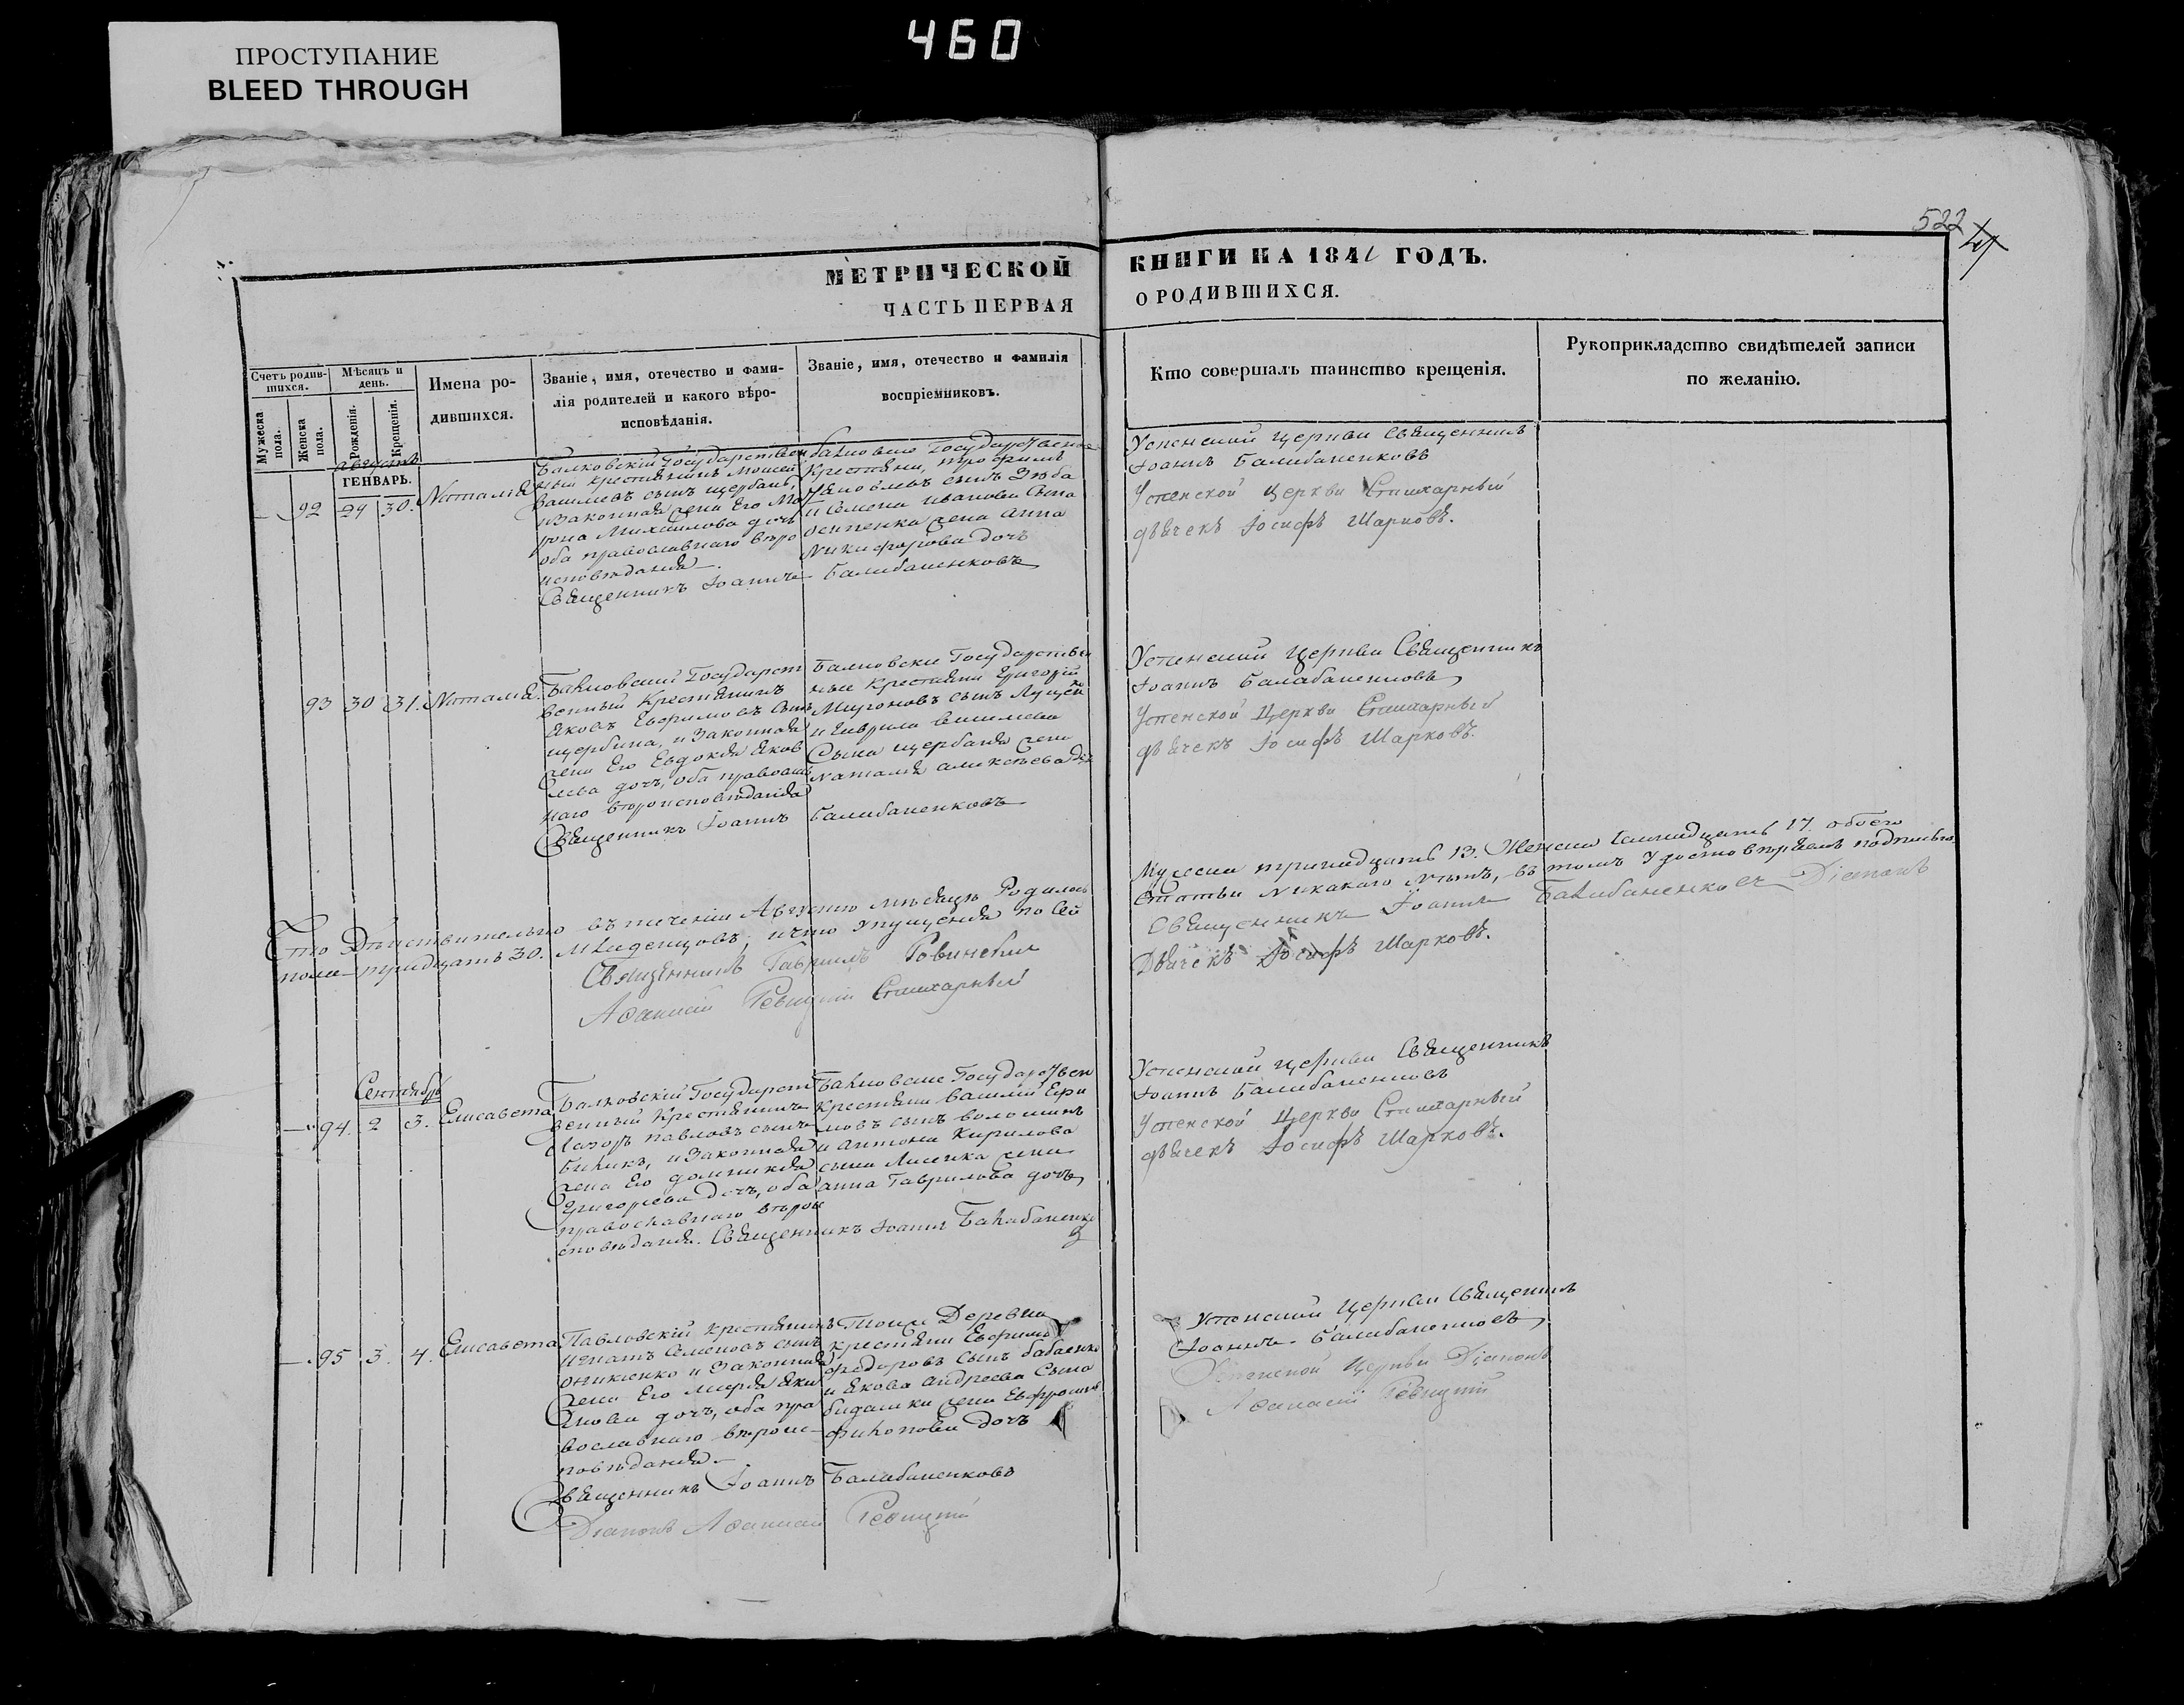 460
ПРОСТУПАНИЕ
BLEED THROUGH
522
МЕТРИЧЕСКОЙ
КНИГИ НА 1841 ГОДЪ.
ЧАСТЬ ПЕРВАЯ
О РОДИВШИХСЯ.
Счетъ родив-
шихся.
Мужеска пола.
Женска пола.
Мѣсяцъ и
день.
Рожденія.
Крещенія.
Имена ро-
дившихся.
Званіе, имя, отечество и фами-
лія родителей и какого вѣро-
исповѣданія.
Званіе, имя, отечество и фамилія
воспріемниковъ.
Кто совершалъ таинство крещенія.
Рукоприкладство свидѣтелей записи
по желанію.
Августъ
ГЕНВАРЬ.
92 29 30. Наталия
Балковскій Государствен
ный крестьянинъ Моисей
Василиевъ сынъ щербань,
и Законная жена Его Ма
Михайлова дочь
оба православнаго вѣро
исповѣдания.
Священникъ Іоаннъ Балабаненковъ
Балковские Государствение
Крестьяни, трофимъ
Яковлевъ сынъ
и Семена Иванова сына
осипенка жена Анна
Никифорова дочь
Успенской церкви Священникъ
Іоаннъ Балабаненковъ
Успенской церкви Стихарный
дьячекъ Іосифъ Шарковъ.
93 30 31. Наталия.
Балковский Государст
венный Крестьянинъ
Яковъ Ефимовъ сынъ
щербина, и Законная
жена Его Евдокия Яков
лева дочь, оба православ
наго вѣроисповѣдания
Священникъ Іоаннъ Балабаненковъ
Балковские Государствен
ные крестьяни Григорий
Мироновъ сынъ Луцен
и Гаврила Василиева
Сына щербаня жена
Наталия алексѣева
Успенской Церкви Священникъ
Іоаннъ Балабаненковъ
Успенской Церкви Стихарный
дьячекъ Іосифъ Шарковъ.
Что Дѣйствительно въ течении Августа мѣсяца Родилось
Мужеска тринадцать 13. Женска Семнадцать 17. обоего
пола тридцать 30. Младенцовъ, и что упущения по Сей
Статьи Никакого Нѣтъ, въ томъ Удостовѣряемъ подписью
Священникъ Гавриилъ Ровинский
Священникъ Іоаннъ Балабаненковъ Діаконъ
Афанасий Ревицкий Стихарный
Дьячекъ Іосифъ Шарковъ.
Сентябрь
94. 2 3. Елисавета
Балковскій Государст
венный Крестьянинъ
Лазоръ павловъ сынъ
Быкъ, и Законная
жена Его домникия
Григориева дочь, оба
православнаго вѣрои
сповѣдания. Священникъ Іоаннъ Балабаненко
въ
Балковские Государствен
Крестьяни Василий Ефи
мовъ сынъ волошинъ
и антона Кирилова
сына Лисенка жена
анна Гаврилова дочь
Успенской церкви Священникъ
Іоаннъ Балабаненковъ
Успенской Церкви Стихарный
дьячекъ Іосифъ Шарковъ.
95 3. 4. Елисавета
Павловскій Крестьянинъ
Игнатъ Семеновъ сынъ
и Законная
жена Его
дочь, оба пра
вославнаго вѣроис
повѣдания
Священникъ Іоаннъ Балабаненковъ
Діаконъ Афанасий Ревицкий
Тоиже Деревни
крестьяни Ефимъ
федоровъ сынъ бабаенко
и якова андреева Сына
жена Евфросиния
филипова дочь
Успенской Церкви Священникъ
Іоаннъ Балабаненковъ
Успенской Церкви Діаконъ
Афанасий Ревицкий